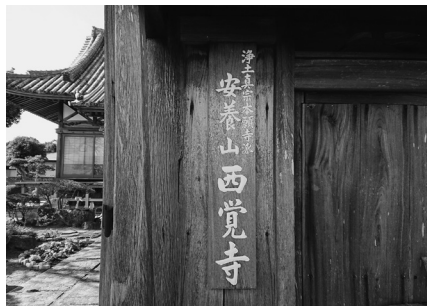 浄土真宗本願寺派
安養山西覚寺